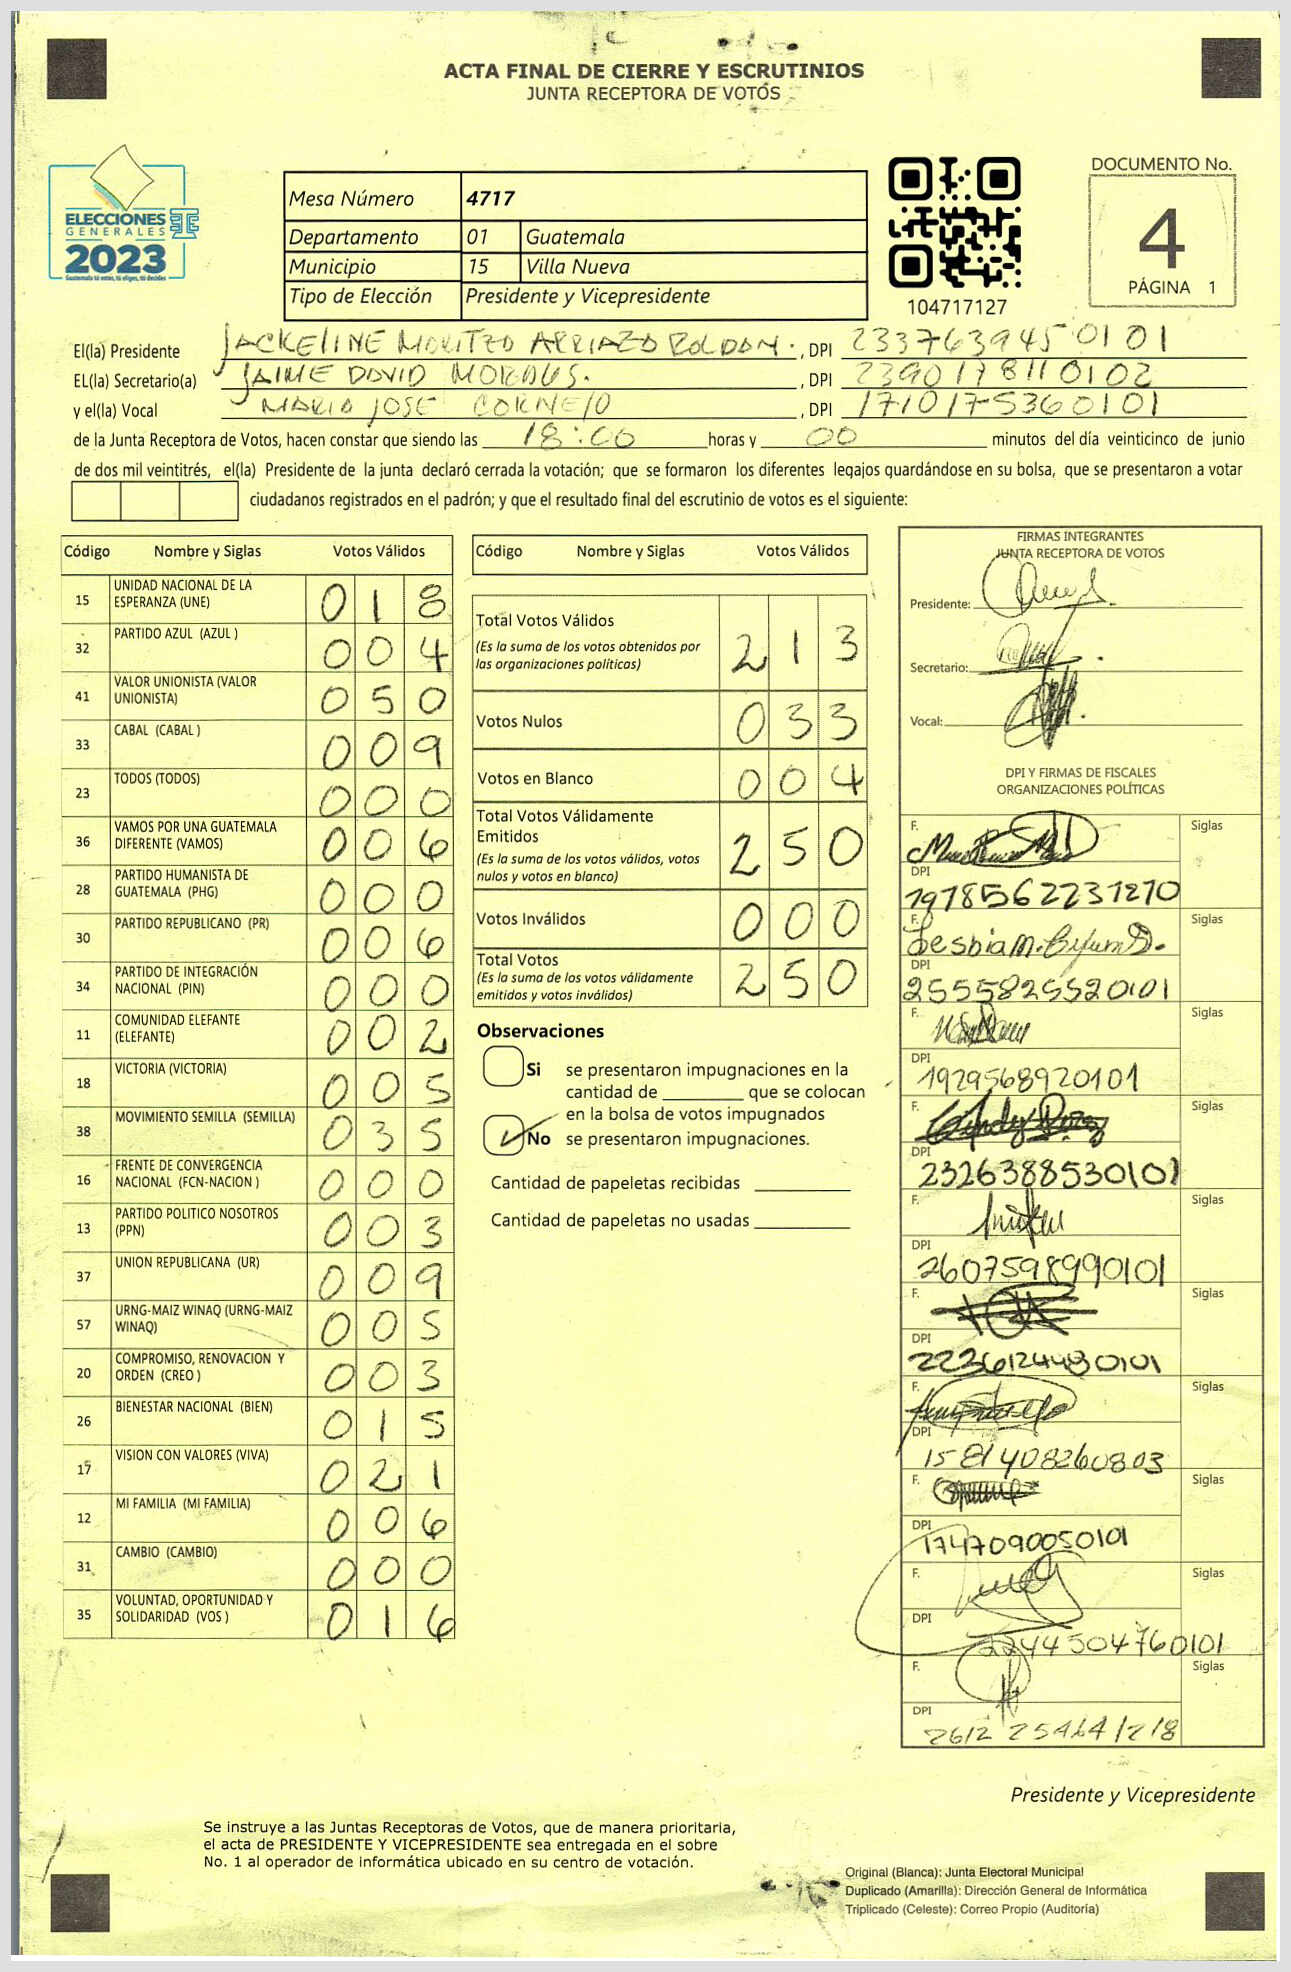 ACTA FINAL DE CIERRE Y ESCRUTINIOS
JUNTA RECEPTORA DE VOTOS
ELECCIONES
GENERALES
2023
Guatemala tú votas, tú eliges, tú decides
Mesa Número 4717
Departamento 01 Guatemala
Municipio 15 Villa Nueva
Tipo de Elección Presidente y Vicepresidente
104717127
DOCUMENTO No.
4
PÁGINA 1
El(la) Presidente JACKELINE ARRIAZA ROLDAN. , DPI 2337639450101
EL(la) Secretario(a) JAIME DAVID MORALES. , DPI 2390178110102
y el(la) Vocal MARIO JOSE CORNEJO , DPI 1710175360101
de la Junta Receptora de Votos, hacen constar que siendo las 18:00 horas y 00 minutos del día veinticinco de junio
de dos mil veintitrés, el(la) Presidente de la junta declaró cerrada la votación; que se formaron los diferentes legajos quardándose en su bolsa, que se presentaron a votar
ciudadanos registrados en el padrón; y que el resultado final del escrutinio de votos es el siguiente:
Código Nombre y Siglas Votos Válidos
15 UNIDAD NACIONAL DE LA ESPERANZA (UNE) 018
32 PARTIDO AZUL (AZUL ) 004
41 VALOR UNIONISTA (VALOR UNIONISTA) 050
33 CABAL (CABAL ) 009
23 TODOS (TODOS) 000
36 VAMOS POR UNA GUATEMALA DIFERENTE (VAMOS) 006
28 PARTIDO HUMANISTA DE GUATEMALA (PHG) 000
30 PARTIDO REPUBLICANO (PR) 006
34 PARTIDO DE INTEGRACIÓN NACIONAL (PIN) 000
11 COMUNIDAD ELEFANTE (ELEFANTE) 002
18 VICTORIA (VICTORIA) 005
38 MOVIMIENTO SEMILLA (SEMILLA) 035
16 FRENTE DE CONVERGENCIA NACIONAL (FCN-NACION ) 000
13 PARTIDO POLITICO NOSOTROS (PPN) 003
37 UNION REPUBLICANA (UR) 009
57 URNG-MAIZ WINAQ (URNG-MAIZ WINAQ) 005
20 COMPROMISO, RENOVACION Y ORDEN (CREO ) 003
26 BIENESTAR NACIONAL (BIEN) 015
17 VISION CON VALORES (VIVA) 021
12 MI FAMILIA (MI FAMILIA) 006
31 CAMBIO (CAMBIO) 000
35 VOLUNTAD, OPORTUNIDAD Y SOLIDARIDAD (VOS ) 016
Código Nombre y Siglas Votos Válidos
Total Votos Válidos 213
(Es la suma de los votos obtenidos por
las organizaciones políticas)
Votos Nulos 033
Votos en Blanco 004
Total Votos Válidamente
Emitidos 250
(Es la suma de los votos válidos, votos
nulos y votos en blanco)
Votos Inválidos 000
Total Votos 250
(Es la suma de los votos válidamente
emitidos y votos inválidos)
Observaciones
Si se presentaron impugnaciones en la
cantidad de que se colocan
en la bolsa de votos impugnados
No se presentaron impugnaciones.
Cantidad de papeletas recibidas
Cantidad de papeletas no usadas
FIRMAS INTEGRANTES
JUNTA RECEPTORA DE VOTOS
Presidente:
Secretario:
Vocal:
DPI Y FIRMAS DE FISCALES
ORGANIZACIONES POLÍTICAS
F. Siglas
DPI
1978562231270
F. Lesbia M. Siglas
DPI
2555825520101
F. Siglas
DPI
1929568920101
F. Siglas
DPI
2326388530101
F. Siglas
DPI
2607598990101
F. Siglas
DPI
2236124480101
F. Siglas
DPI
1581408260803
F. Siglas
DPI
1747090050101
F. Siglas
DPI
2244504760101
F. Siglas
DPI
2612 25464 1218
Presidente y Vicepresidente
Se instruye a las Juntas Receptoras de Votos, que de manera prioritaria,
el acta de PRESIDENTE Y VICEPRESIDENTE sea entregada en el sobre
No. 1 al operador de informática ubicado en su centro de votación.
Original (Blanca): Junta Electoral Municipal
Duplicado (Amarilla): Dirección General de Informática
Triplicado (Celeste): Correo Propio (Auditoría)